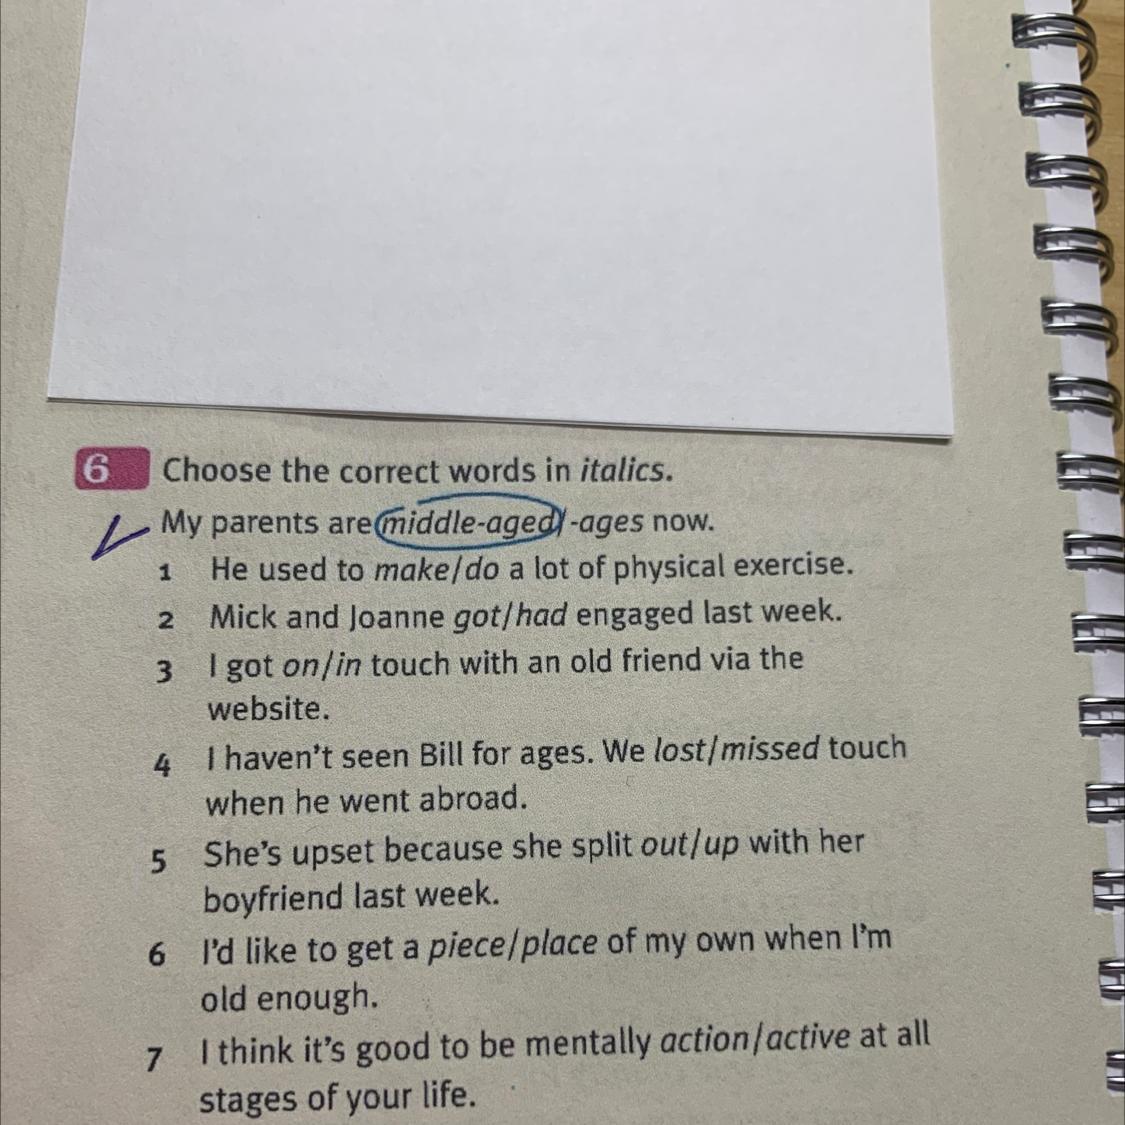 6 Choose the correct words in italics.
My parents are middle-aged/-ages now.
1 He used to make/do a lot of physical exercise.
2 Mick and Joanne got/had engaged last week.
3 I got on/in touch with an old friend via the
website.
4 I haven't seen Bill for ages. We lost/missed touch
when he went abroad.
5 She's upset because she split out/up with her
boyfriend last week.
6 I'd like to get a piece/place of my own when I'm
old enough.
7 I think it's good to be mentally action/active at all
stages of your life.